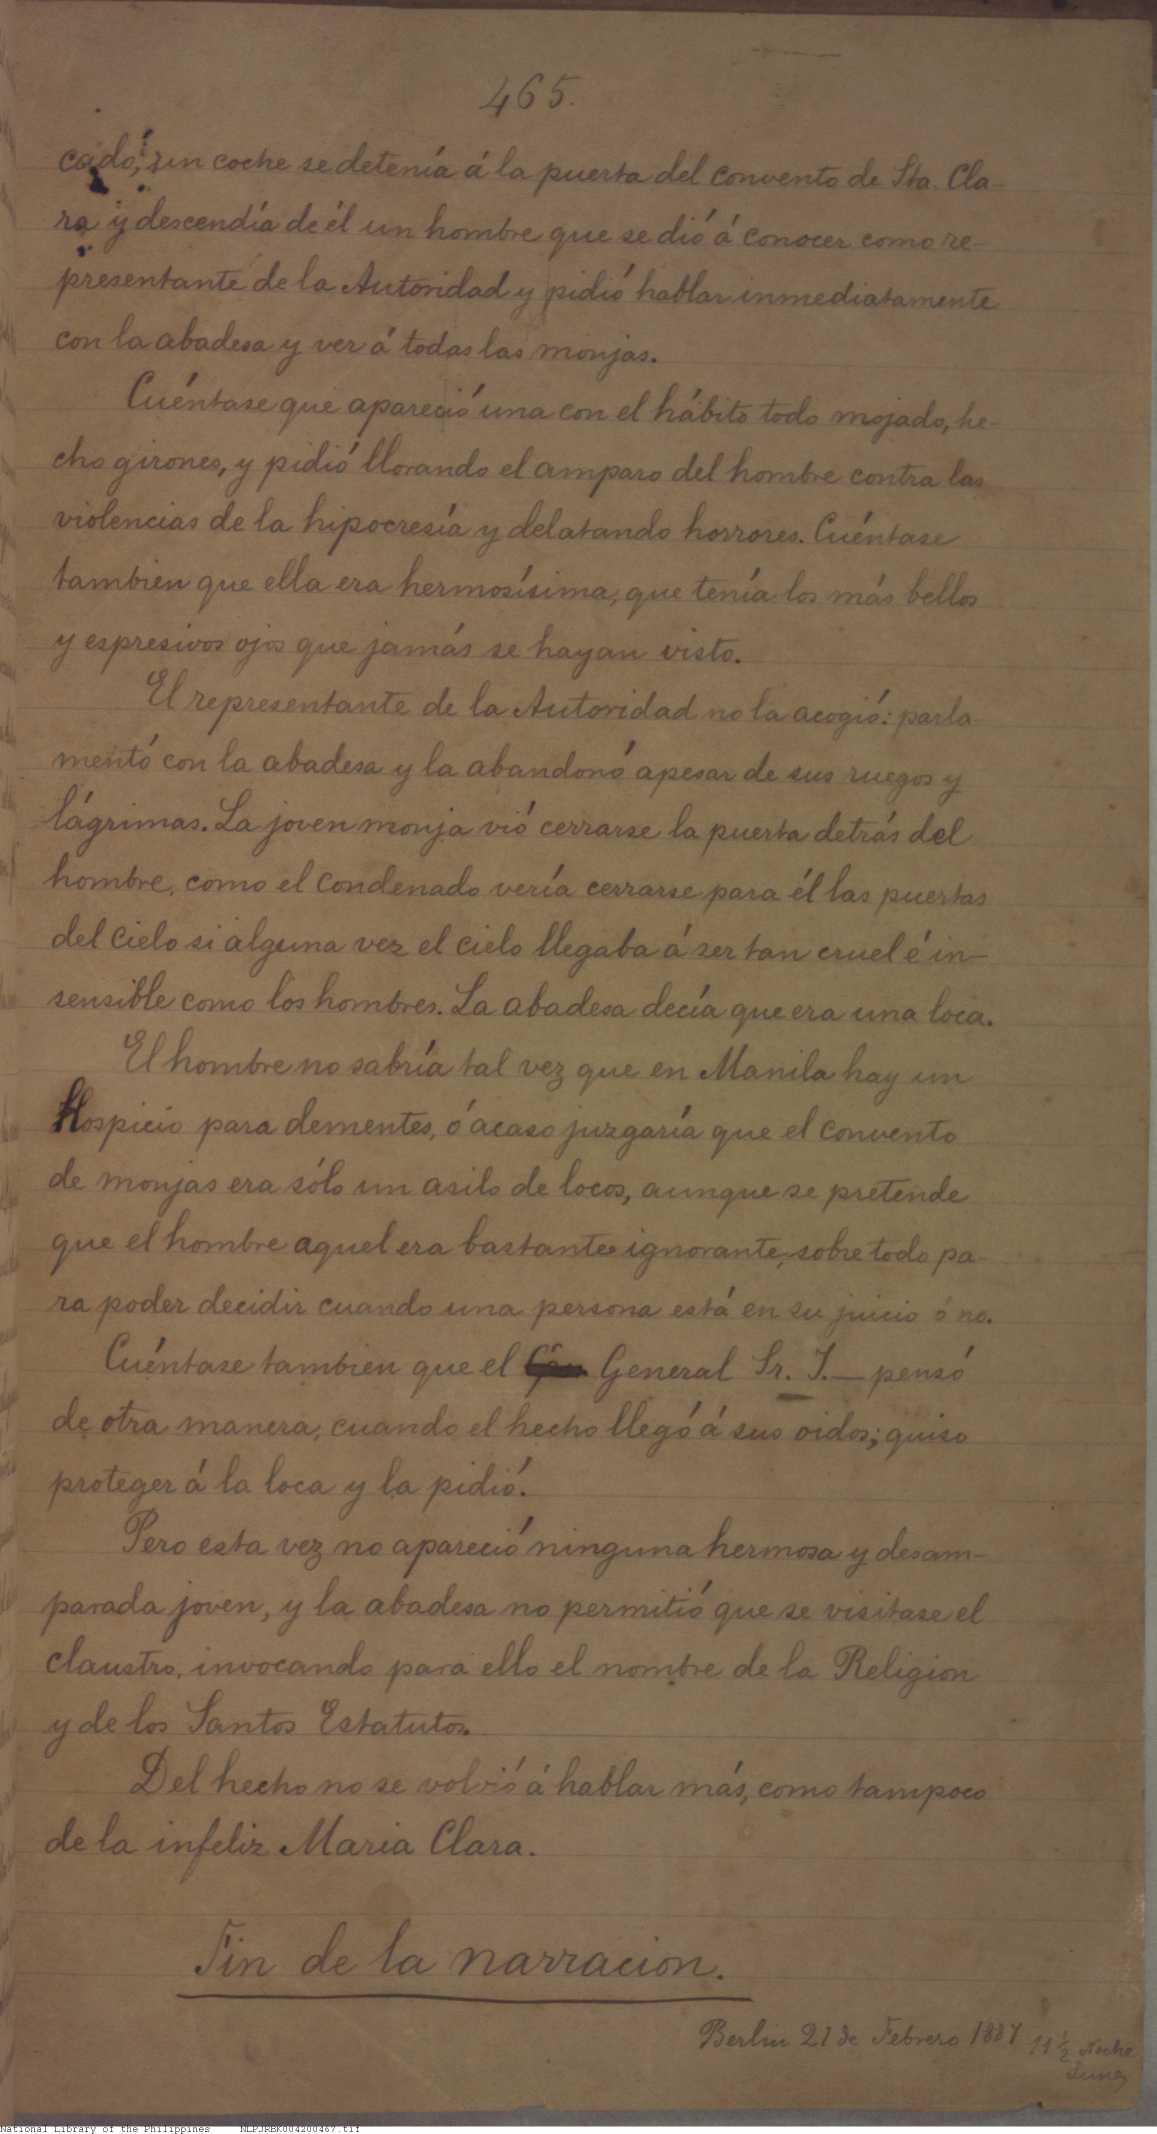 465.
cado, un coche se detenía á la puerta del convento de Sta. Cla-
ra y descendía de él un hombre que se dió á conocer como re-
presentante de la Autoridad y pidió hablar inmediatamente
con la abadesa y ver á todas las monjas.
Cuéntase que apareció una con el hábito todo mojado, he-
cho girones, y pidió llorando el amparo del hombre contra las
violencias de la hipocresía y delatando horrores. Cuéntase
tambien que ella era hermosísima, que tenía los más bellos
y espresivos ojos que jamás se hayan visto.
El representante de la Autoridad no la acogió: parla-
mentó con la abadesa y la abandonó apesar de sus ruegos y
lágrimas. La joven monja vió cerrarse la puerta detrás del
hombre, como el condenado vería cerrarse para él las puertas
del cielo si alguna vez el cielo llegaba á ser tan cruel é in-
sensible como los hombres. La abadesa decía que era una loca.
El hombre no sabría tal vez que en Manila hay un
Hospicio para dementes, ó acaso juzgaría que el convento
de monjas era sólo un asilo de locos, aunque se pretende
que el hombre aquel era bastante ignorante, sobre todo pa-
ra poder decidir cuando una persona está en su juicio ó no.
Cuéntase tambien que el General Sr. J.— pensó
de otra manera, cuando el hecho llegó á sus oidos; quiso
proteger á la loca y la pidió.
Pero esta vez no apareció ninguna hermosa y desam-
parada joven, y la abadesa no permitió que se visitase el
claustro, invocando para ello el nombre de la Religion
y de los Santos Estatutos.
Del hecho no se volvió á hablar más, como tampoco
de la infeliz Maria Clara.
Fin de la narracion.
Berlin 21 de Febrero 1887 11 ½ Noche
Lunes
National Library of the Philippines NLPJRBK004200467.tif